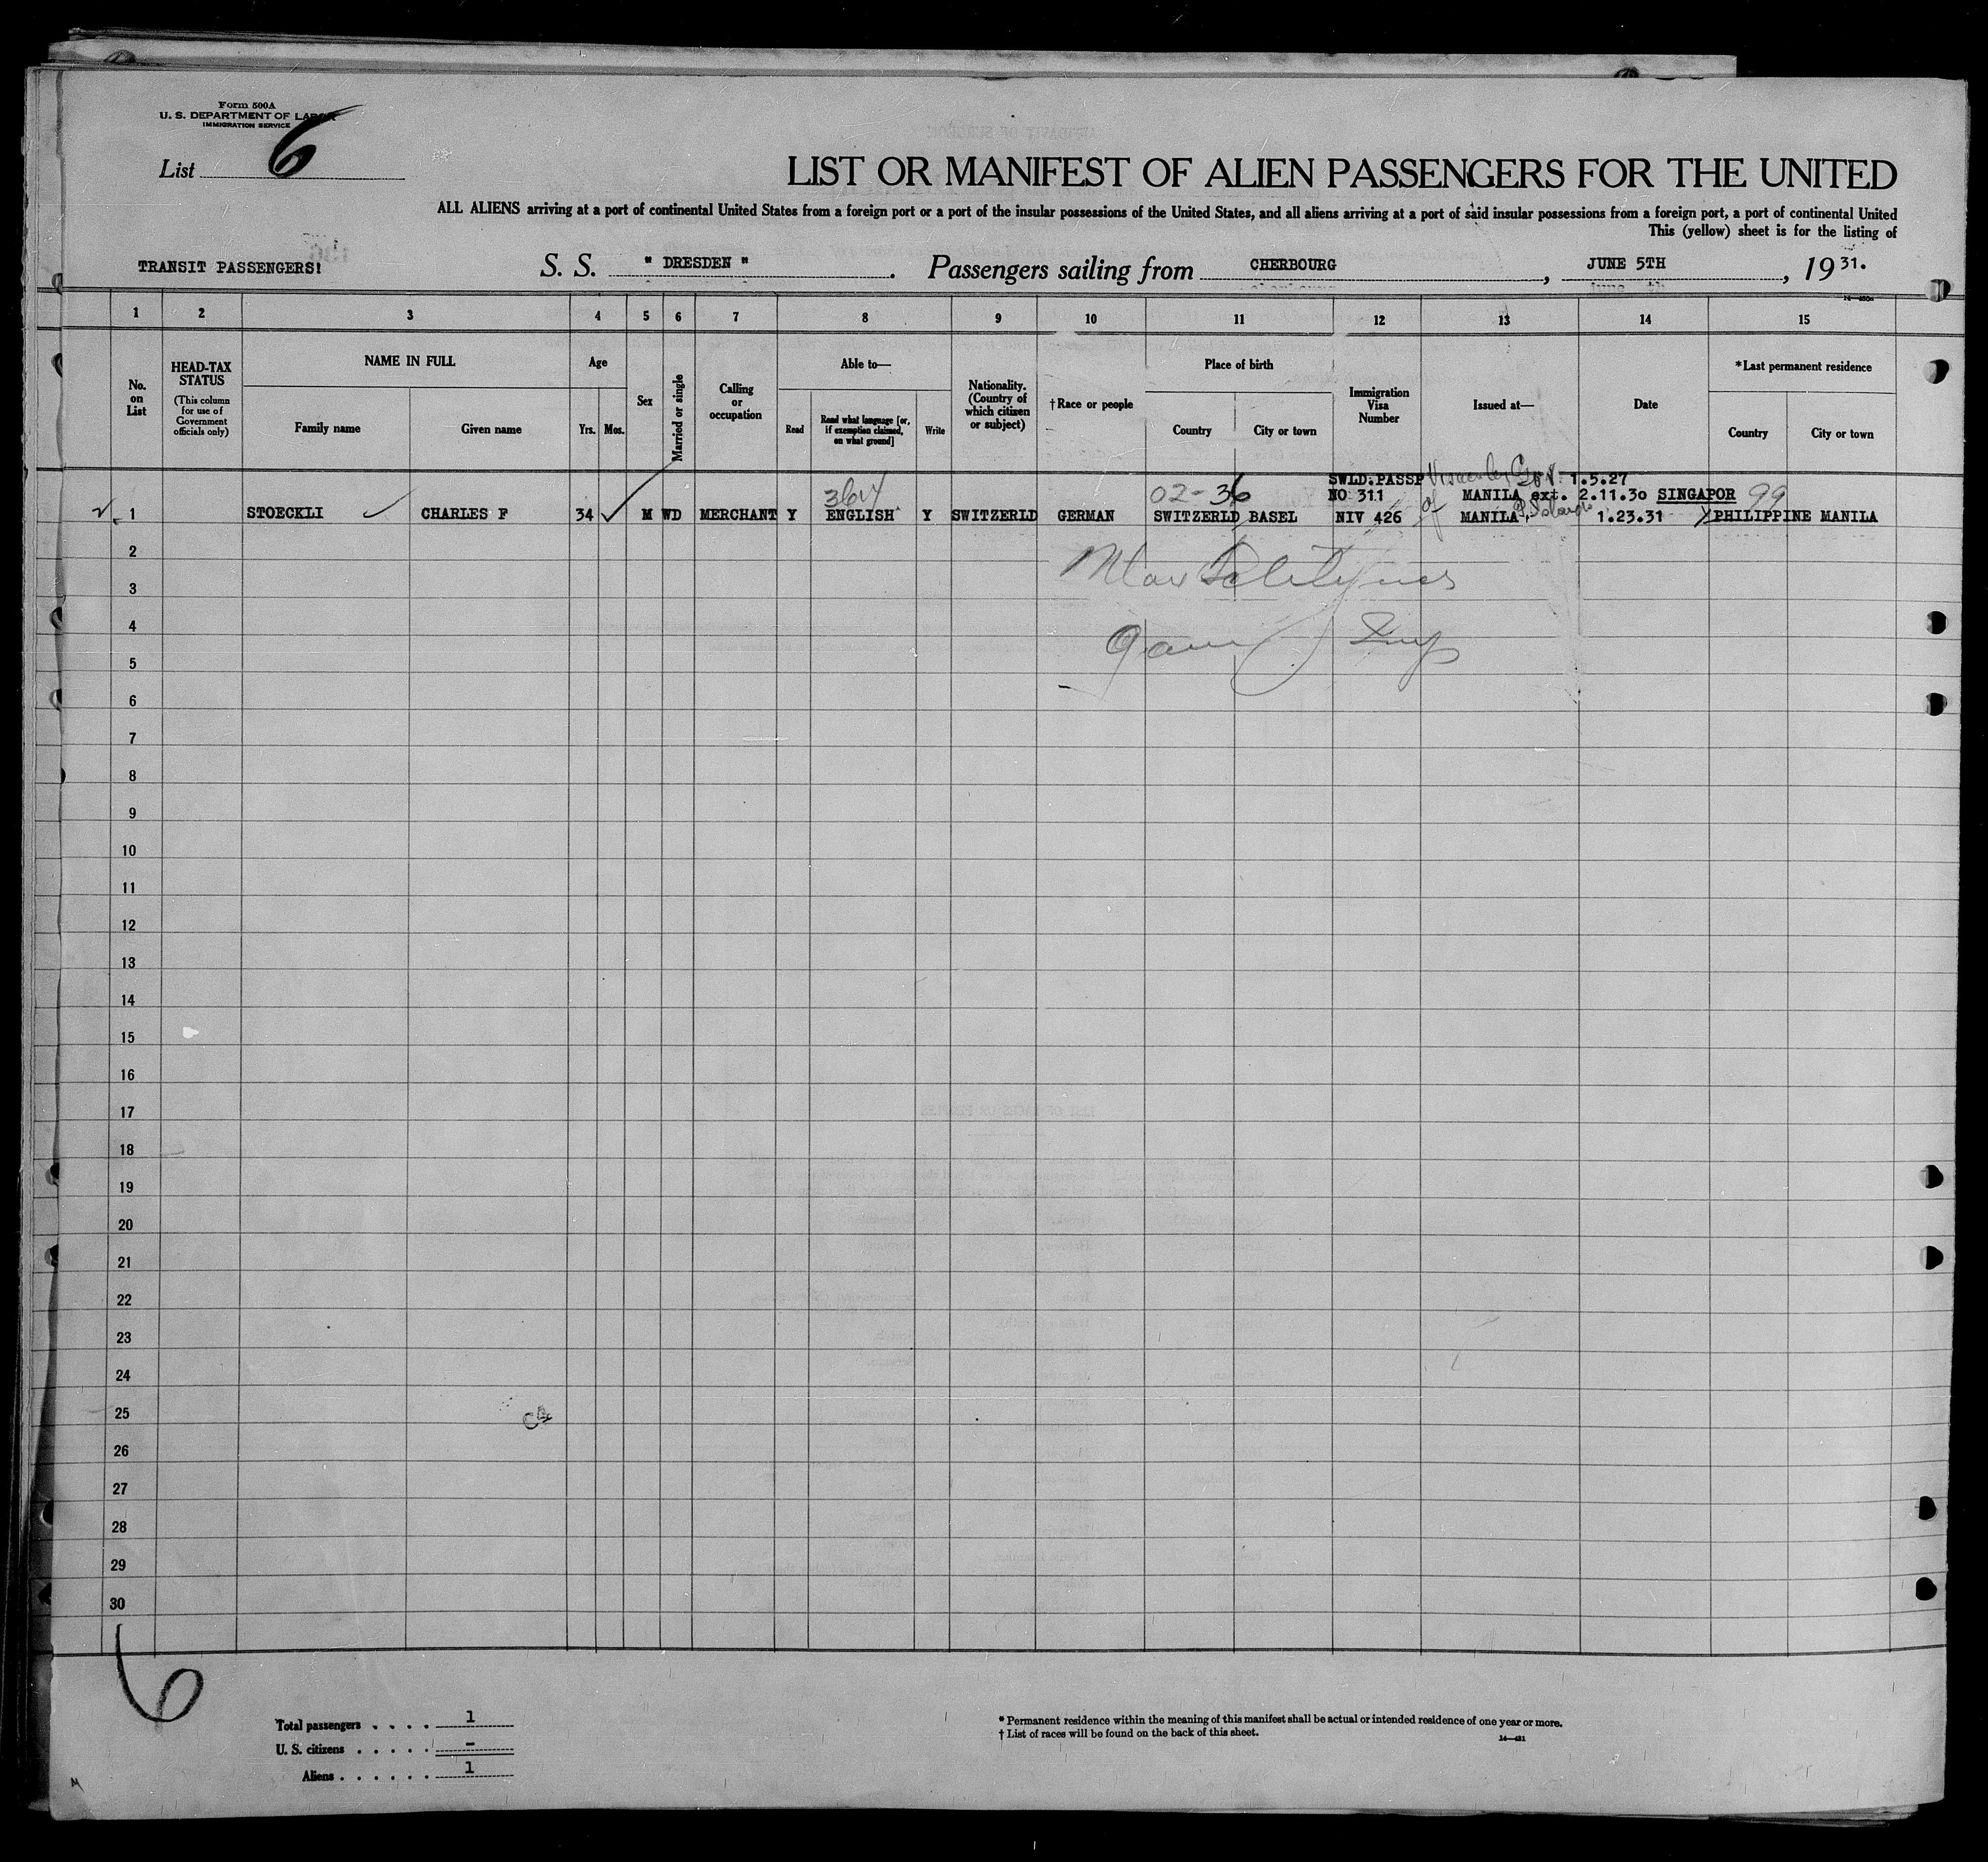 Form 500A
U. S. DEPARTMENT OF LABOR
IMMIGRATION SERVICE
List 6
LIST OR MANIFEST OF ALIEN PASSENGERS FOR THE UNITED
ALL ALIENS arriving at a port of continental United States from a foreign port or a port of the insular possessions of the United States, and all aliens arriving at a port of said insular possessions from a foreign port, a port of continental United
This (yellow) sheet is for the listing of
TRANSIT PASSENGERS! S. S. " DRESDEN ". Passengers sailing from CHERBOURG, JUNE 5TH, 19 31.
1 2 3 4 5 6 7 8 9 10 11 12 13 14 15
No. on List
HEAD-TAX STATUS
(This column for use of Government officials only)
NAME IN FULL
Family name Given name
Age
Yrs. Mos.
Sex
Married or single
Calling or occupation
Able to—
Read
Read what language [or, if exemption claimed, on what ground]
Write
Nationality. (Country of which citizen or subject)
†Race or people
Place of birth
Country City or town
Immigration Visa Number
Issued at—
Date
*Last permanent residence
Country City or town
SWLD.PASSP 1.5.27
364 02-36 NO 311 MANILA ext. 2.11.30 SINGAPOR 99
1 STOECKLI CHARLES F 34 M WD MERCHANT Y ENGLISH Y SWITZERLD GERMAN SWITZERLD BASEL NIV 426 of MANILA, P. Islands 1.23.31 PHILIPPINE MANILA
2
3
4
5
6
7
8
9
10
11
12
13
14
15
16
17
18
19
20
21
22
23
24
25
26
27
28
29
30
6
Total passengers . . . . 1
U. S. citizens . . . . . -
Aliens . . . . . . 1
* Permanent residence within the meaning of this manifest shall be actual or intended residence of one year or more.
† List of races will be found on the back of this sheet.
14—421